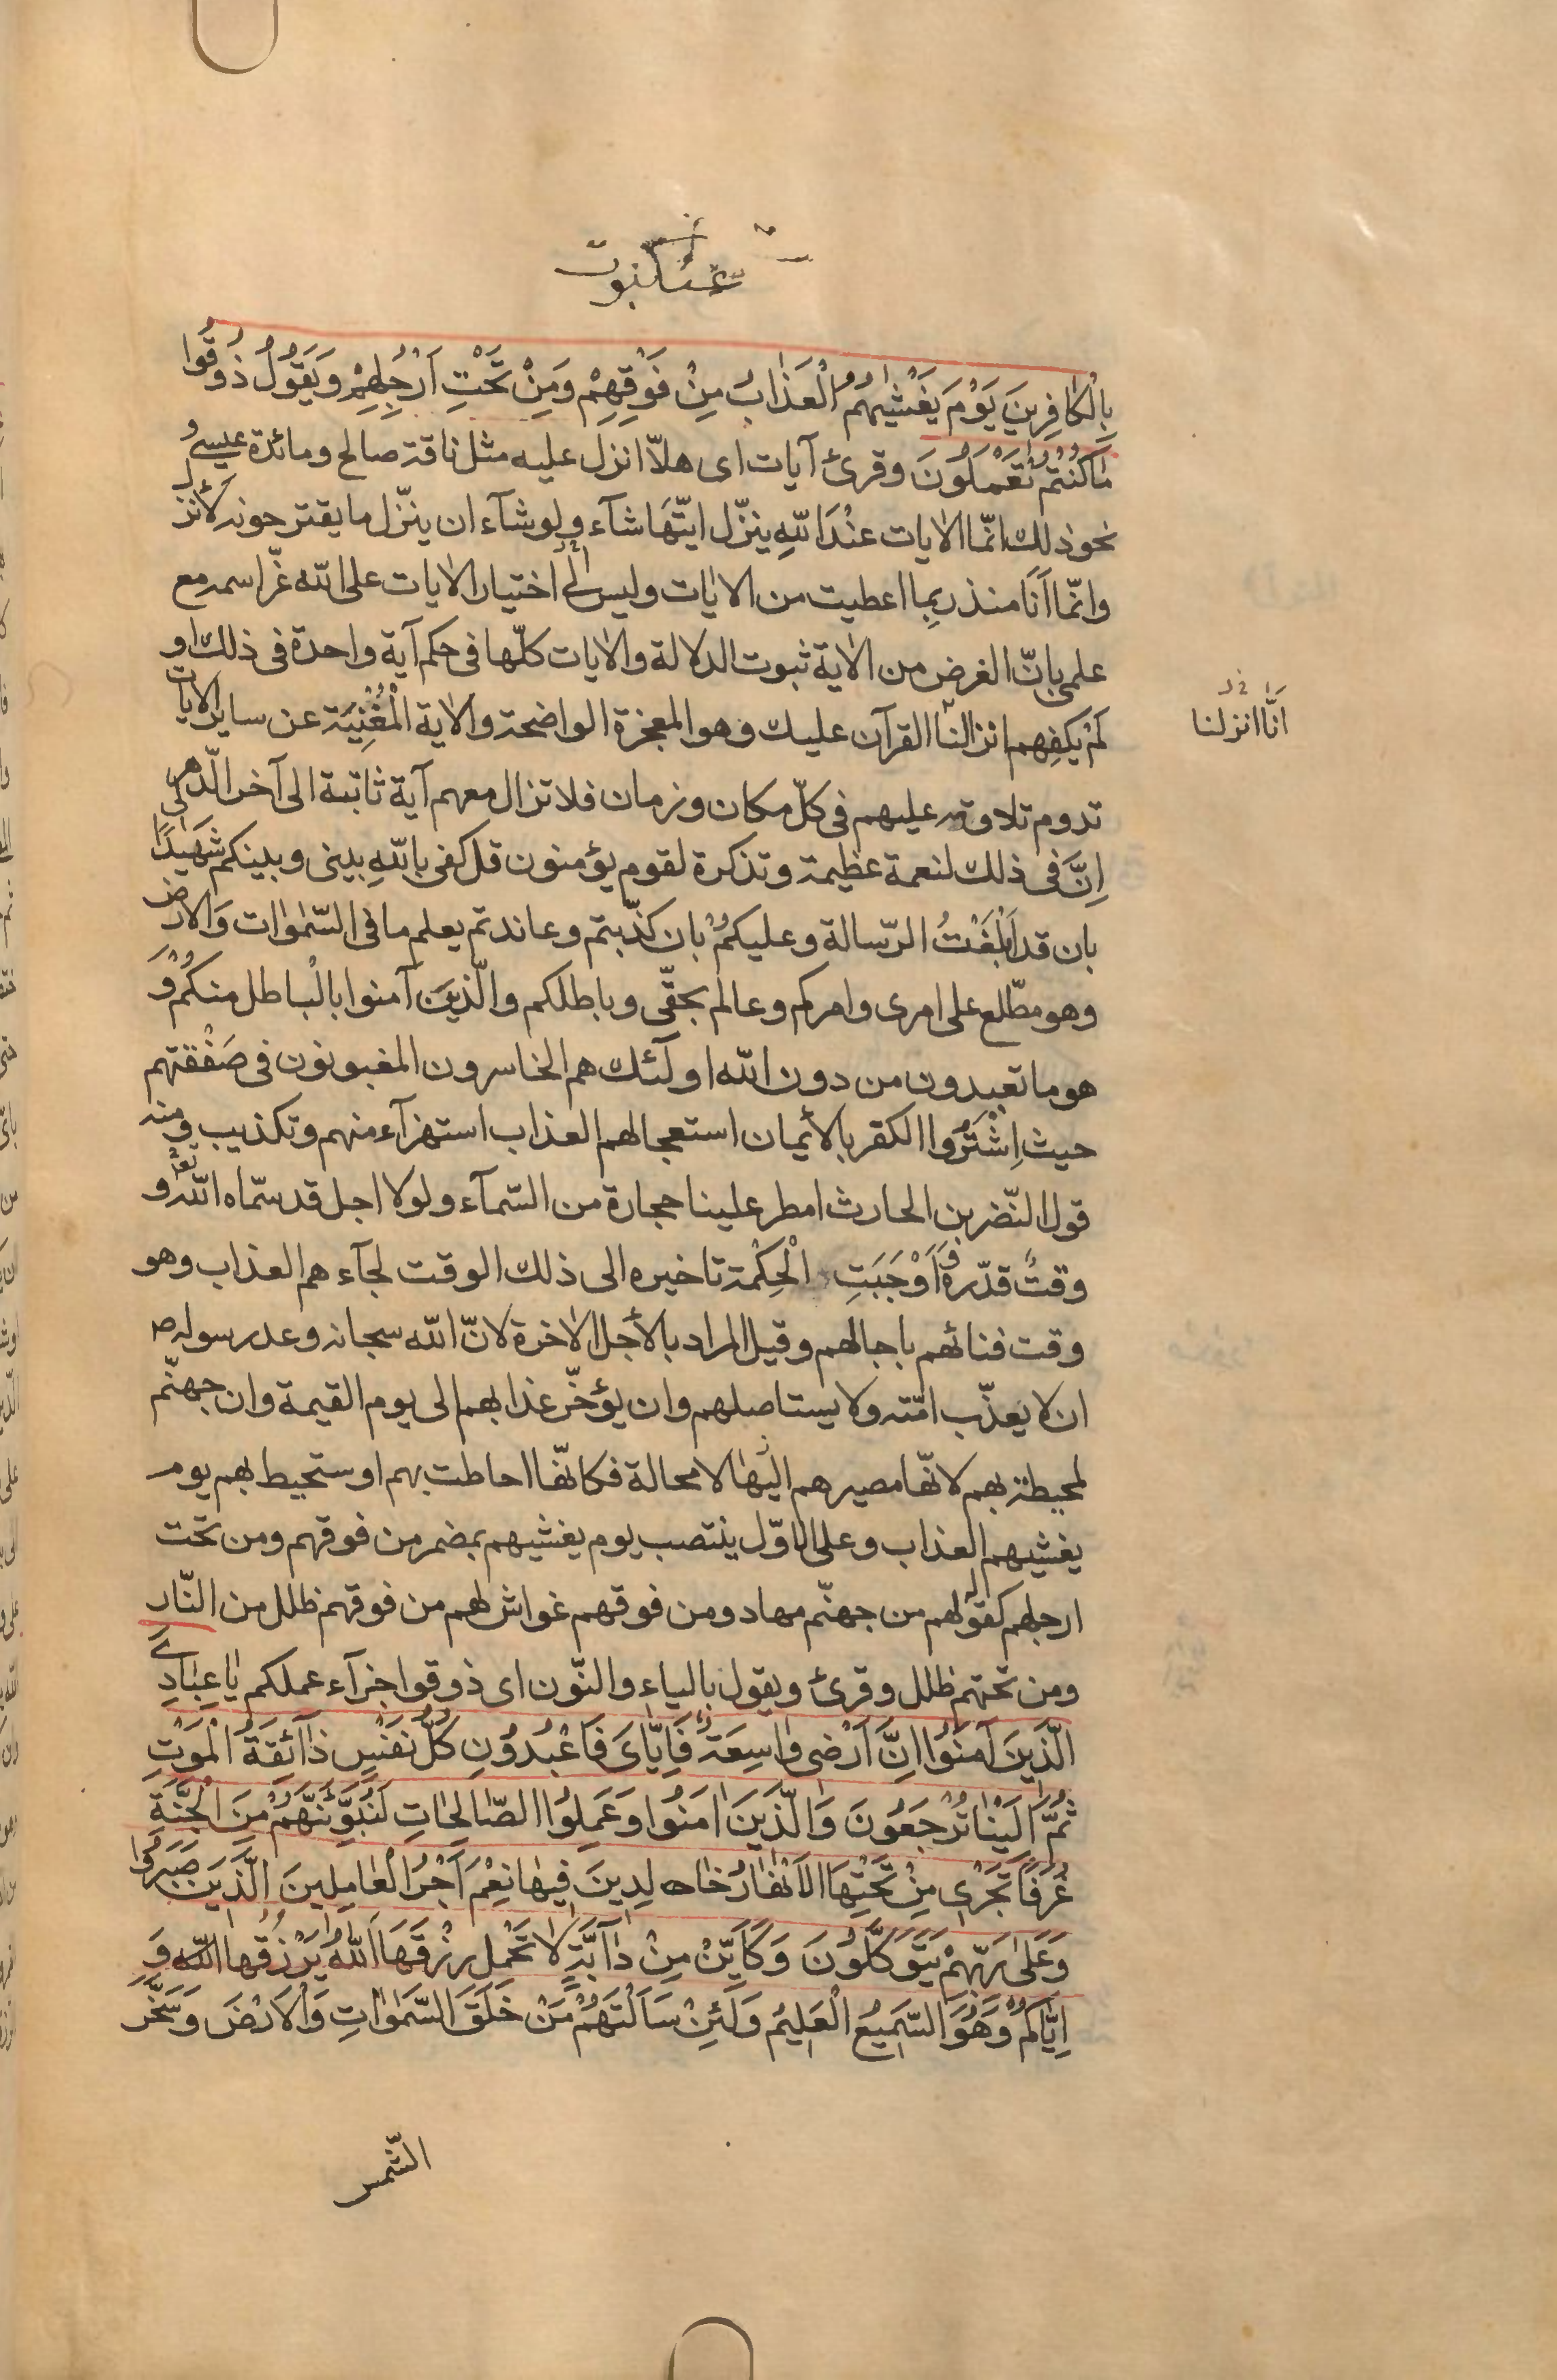 عنكبوت
بِالْكٰافِرِينَ يَوْمَ يَغْشٰيهُمُ الْعَذٰابُ مِنْ فَوْقِهِمْ وَمِنْ تَحْتِ اَرْجُلِهِمْ وَيَقُولُ ذُوقُوا
مٰا كُنْتُمْ تَعْمَلُونَ وقرئ آيات اى هلّا انزل عليه مثل ناقة صالح ومائدة عيسى و
نحو ذلك انّما الاٰيات عنْدَ اللّهِ ينزّل ايّتَهَا شآء ولو شآء ان ينزّل ما يقترحونه لأنزل
وانّما اَنَا منذر بِما اعطيت من الاٰيات وليس لى اختيار الاٰيات على اللّه عزّ اسمه مع
علمى بانّ الغرض من الاٰية ثبوت الدلالة والاٰيات كلّها فى حكم آية واحدة فى ذلك او
لَمْ يكفِهم انزالنا القرآن عليك وهو المعجزة الواضحة والاٰية الْمُغْنِيَة عن ساير الاٰيات
انَّا انزلنا
تدوم تلاوته عليهم فى كلّ مكان وزمان فلا تزال معهم آية ثابتة الى آخر الدّهر
اِنَّ فى ذلك لنعمة عظيمة وتذكرة لقوم يؤمنون قل كفى باللّهِ بينى وبينكم شَهيدًا
بان قد اَبْلَغْتُ الرّسالة وعليكُمْ بان كذّبتم وعاندتم يعلم ما فى السّمٰوات وَالارض
وهو مطّلع على امرى وامركم وعالم بحقّى وباطلكم والّذينَ آمنوا بالْباطل منكُمْ وَ
هو ما تعبدون من دون اللّه اولٓئك هم الخاسرون المغبونون فى صَفْقتهم
حيث اِشْتَرُوا الكفر بالأيمان استعجالهم العذاب استهزآء منهم وتكذيب ومنه
قول النّضر بن الحارث امطر علينا حجارة من السّمآء ولولا اجل قد سمّاه اللّه و
وقتٌ قدّره فَاَوْجَبَتِ الْحِكْمة تاخيره الى ذلك الوقت لجآءهم العذاب وهو
وقت فنائهم باجالهم وقيل المراد بالأجل الاٰخرة لانّ اللّه سبحانه وعد رسوله ص
ان لا يعذّب امّته ولا يستاصلهم وان يؤخّر عذابهم الى يوم القيمة وان جهنّم
لمحيطة بهم لانّها مصيرهم اليْهٰا لا محالة فكانّها احاطت بهم او ستحيط بهم يوم
يغشيهم العذاب وعلى الاوّل ينتصب يوم يغشيهم بمضمر من فوقهم ومن تحت
ارجلهم كقوله لهم من جهنّم مهاد ومن فوقهم غواش لهم من فوقهم ظلل من النّار
ومن تحتهم ظلل وقرئ ويقول بالياء والنّون اى ذوقوا جزآء عملكم يٰا عِبٰادِى
الّذينَ آمَنُوا اِنَّ اَرْضى وٰاسِعَةٌ فَاِيّٰاىَ فَاعْبُدُونِ كُلُّ نَفْسٍ ذٰآئِقَةُ الْمَوْتِ
ثُمَّ اِلَيْنٰا تُرْجَعُونَ وَالَّذينَ اٰمَنُوا وَعَمِلُوا الصّٰالِحٰاتِ لَنُبَوِّئَنَّهُمْ مِنَ الْجَنَّةِ
غُرَفًا تَجْرى مِنْ تَحْتِهَا الاَنْهٰارُ خٰالِدِينَ فيهٰا نِعْمَ اَجْرُ الْعٰامِلِينَ الَّذينَ صَبَرُوا
وَعَلىٰ رَبِّهِمْ يَتَوَكَّلُونَ وَكَاَيِّنْ مِنْ دٰآبَّةٍ لٰا تَحْمِلُ رِزْقَهَا اَللّٰهُ يَرْزُقُهٰا اللّه وَ
اِيّٰاكُمْ وَهُوَ السَّمِيعُ الْعَلِيمُ وَلَئِنْ سَاَلْتَهُمْ مَنْ خَلَقَ السَّمٰوٰاتِ وَالْاَرْضَ وَسَخَّرَ
الشّمس